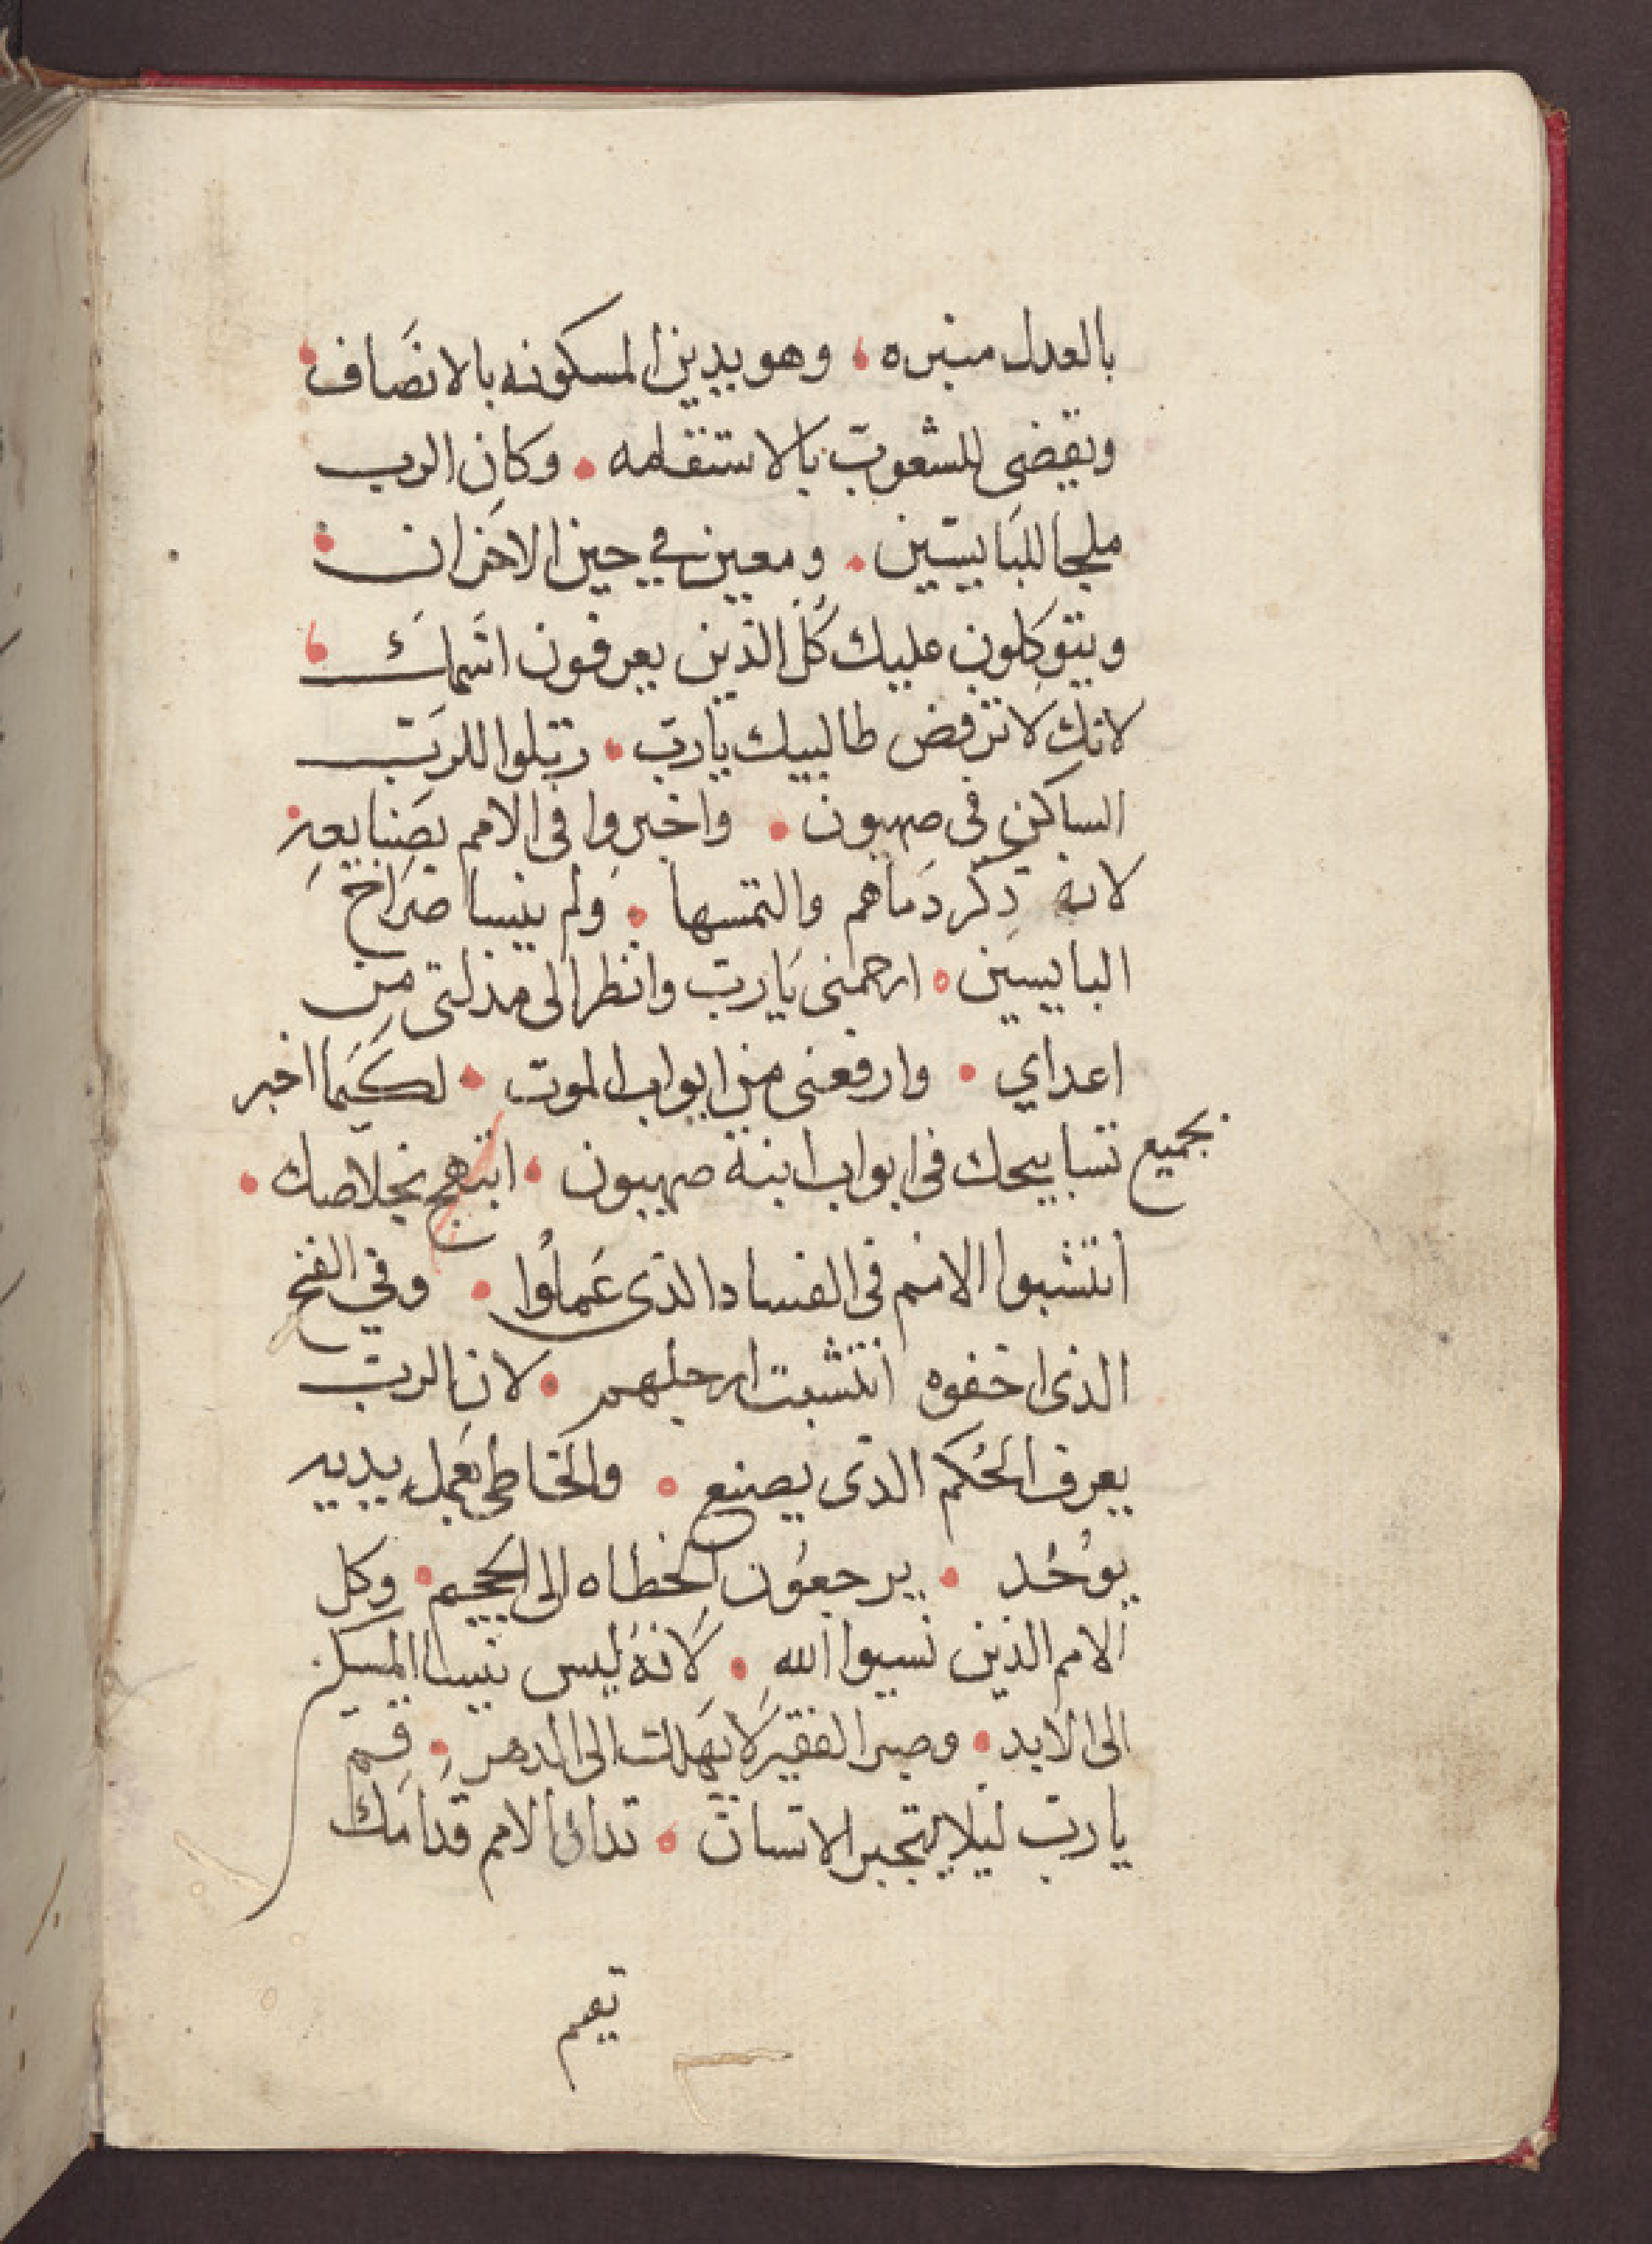 بالعدل منبره • وهو يدين المسكونه بالانصاف •
ويقضي للشعوب بالاستقامه • وكان الرب
ملجا للبايسين • ومعين في حين الاحزان •
ويتوكلون عليك كُل الذين يعرفون اسمك •
لانك لا ترفض طالبيك يارب • رتلوا للرب
الساكن في صهيون • واخبروا في الامم بصنايعه •
لانه ذكر دماهم والتمسها • ولم ينسا صراخ
البايسين • ارحمني يا رب وانظر الى مذلتي من
اعداي • وارفعني من ابواب الموت • لكيما اخبر
بجميع تسابيحك في ابواب ابنة صهيون • ابتهج بخلاصك •
انتشبوا الامم في الفساد الذي عَملوُا • وفي الفخ
الذي اخفوه انتشبت ارجلهم • لان الرب
يعرف الحُكم الذي يصنع • والخاطي بعمل يديه
يوُخُد • يرجعون الخطاه الى الجحيم • وكل
الامم الذين نسيوا الله • لانهُ ليس ينسا المسكين
الى الابد • وصبر الفقير لا يهلك الى الدهر • قم
يا رب ليلا يتجبر الانسان • تدان الامم قدامك